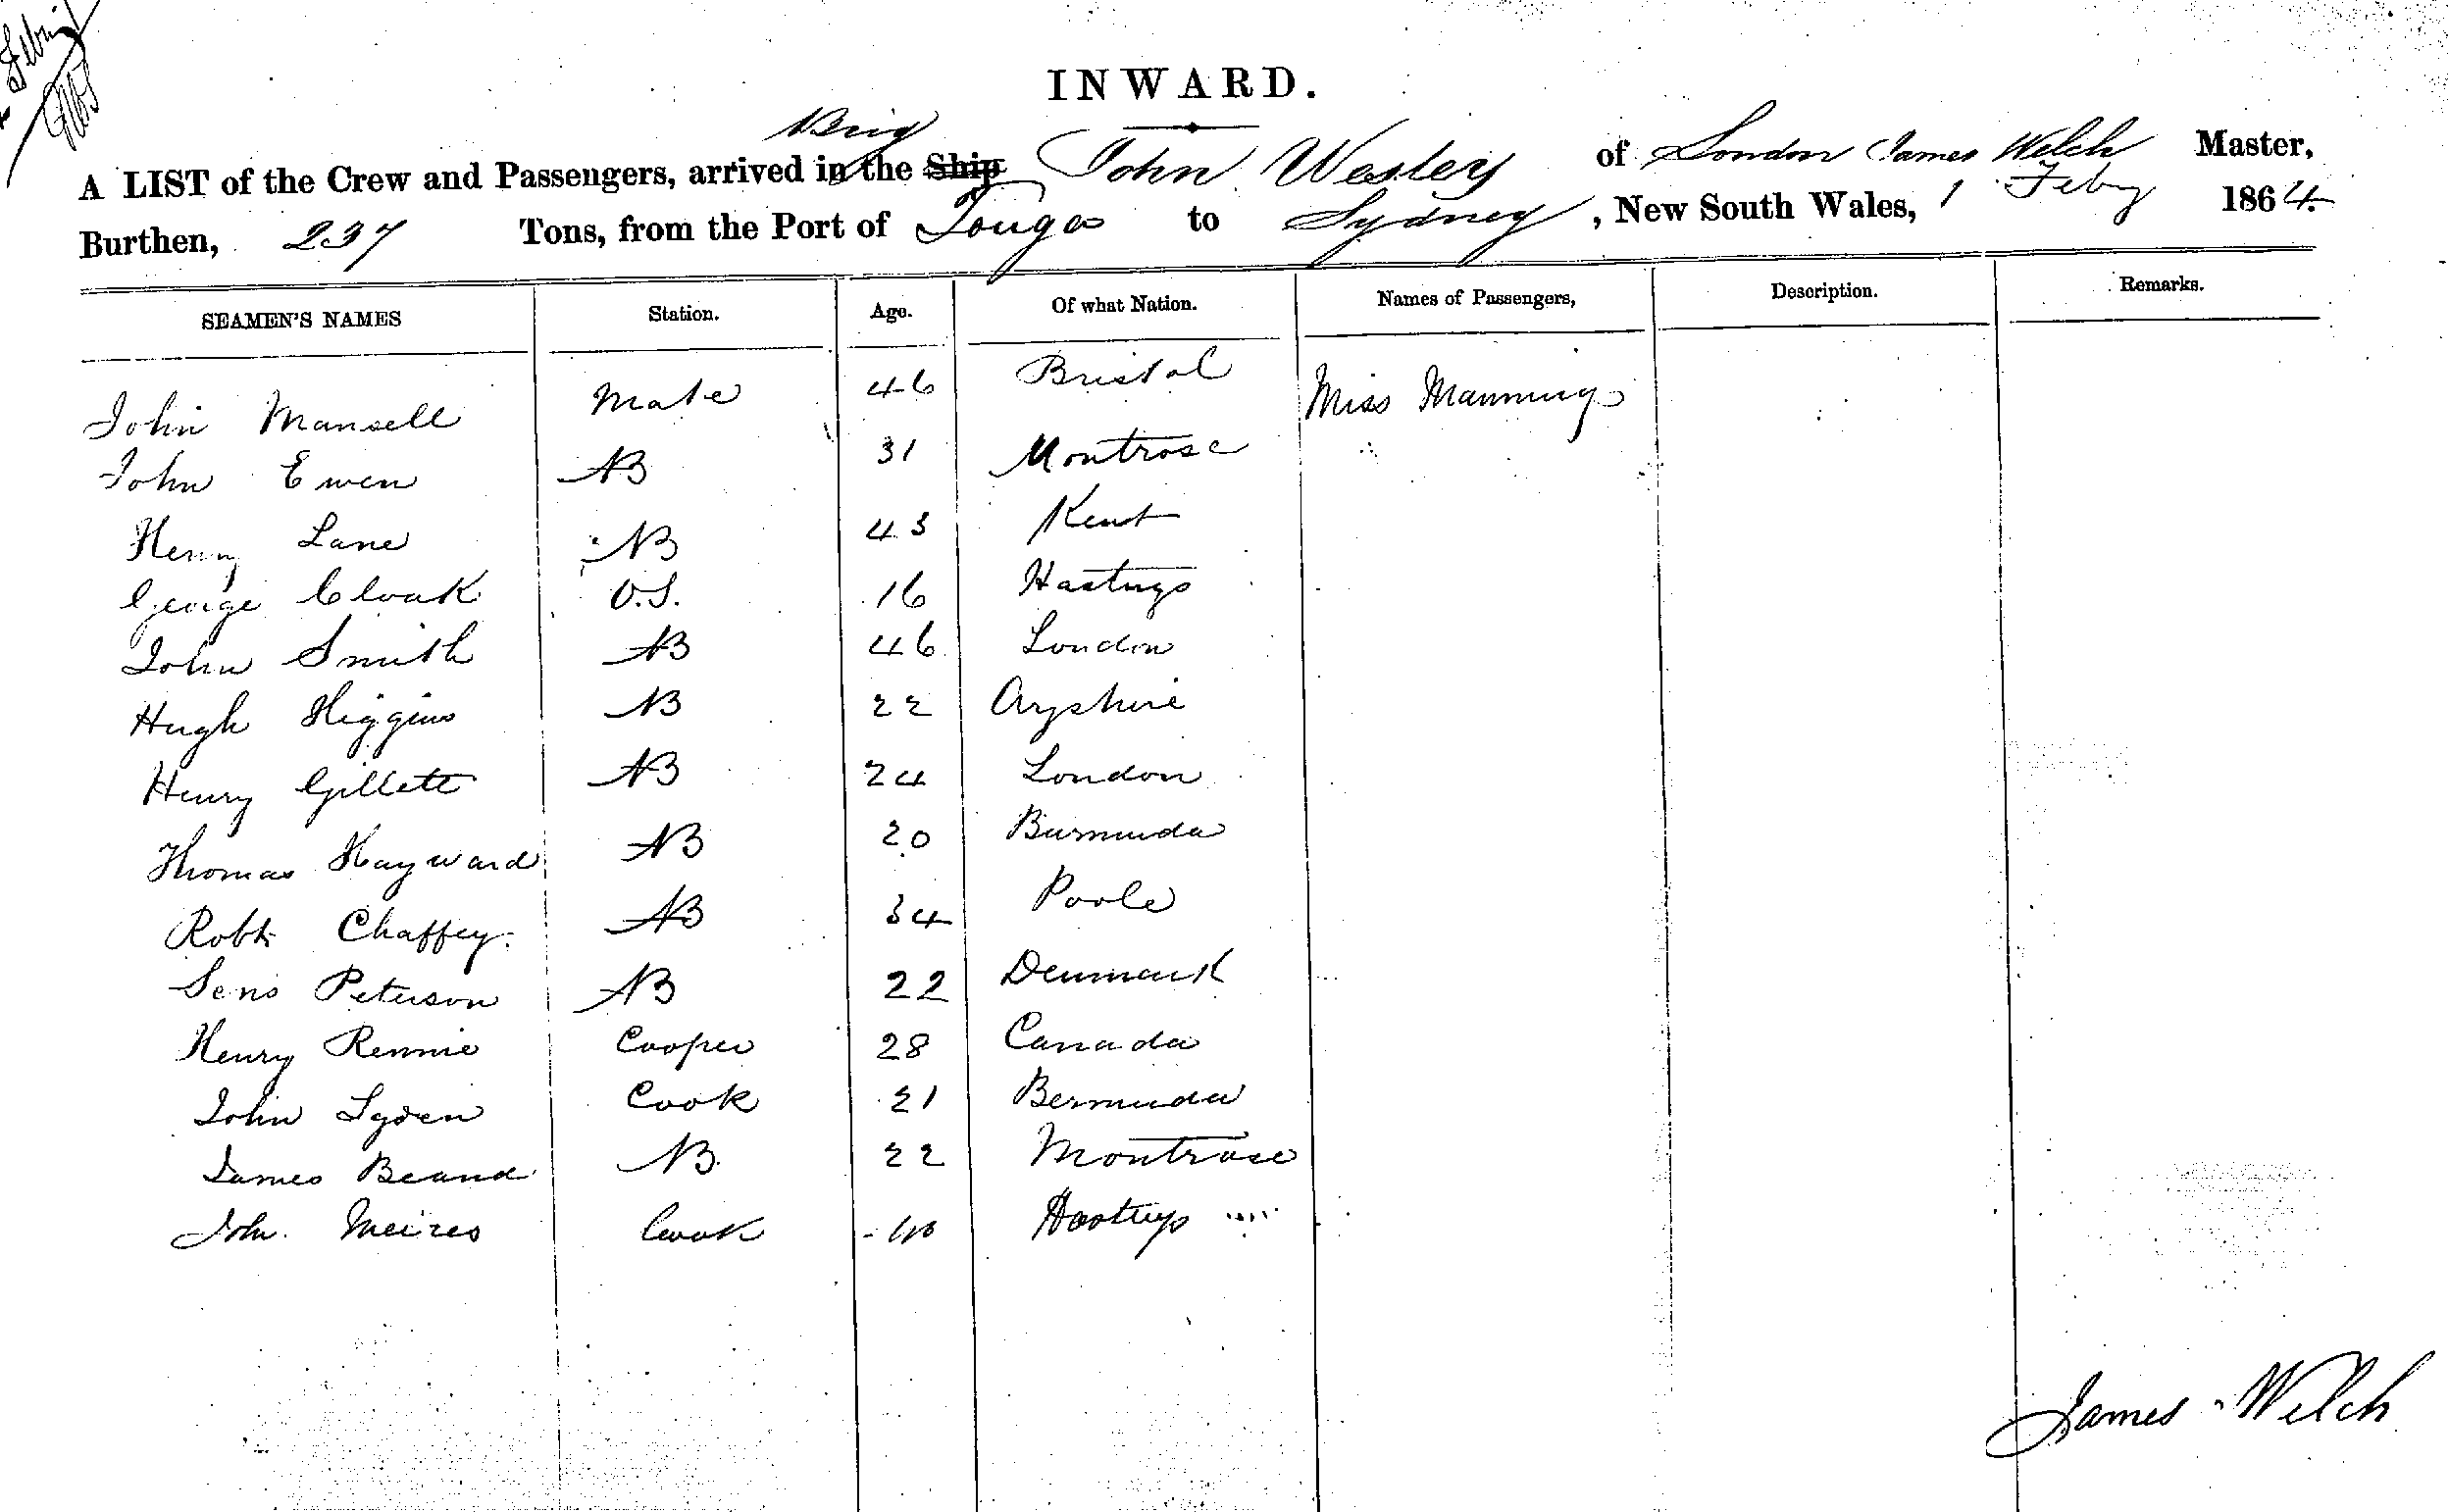 Feby
INWARD.
Brig
A LIST of the Crew and Passengers, arrived in the Ship John Wesley of London James Welch Master,
Burthen, 237 Tons, from the Port of Tonga to Sydney, New South Wales, 1 Feby 1864.
SEAMEN'S NAMES Station. Age. Of what Nation. Names of Passengers, Description. Remarks.
John Mansell Mate 46 Bristol Miss Manning
John Ewen AB 31 Montrose
Henry Lane AB 43 Kent
George Cloak O.S. 16 Hastings
John Smith AB 46 London
Hugh Higgins AB 22 Aryshire
Henry Gillett AB 24 London
Thomas Hayward AB 20 Burmuda
Robt Chaffey. AB 34 Poole
Jens Peterson AB 22 Denmark
Henry Rennie Cooper 28 Canada
John Cook 21 Bermuda
James Beand AB 22 Montrose
John Cook 40 Hastings
James Welch